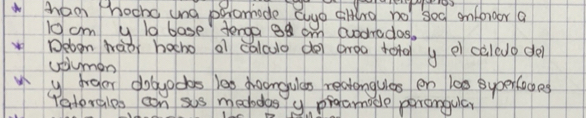 * hacho una pirámide cuya altura no sea inferior a
10 cm y la base tenga 88 cm cuadrados.
* Deben haber hecho el cálculo del area total y el cálculo del
volumen
* y traer dibujados los triangulos rectangulos en las superficies
laterales con sus medidas y piramide